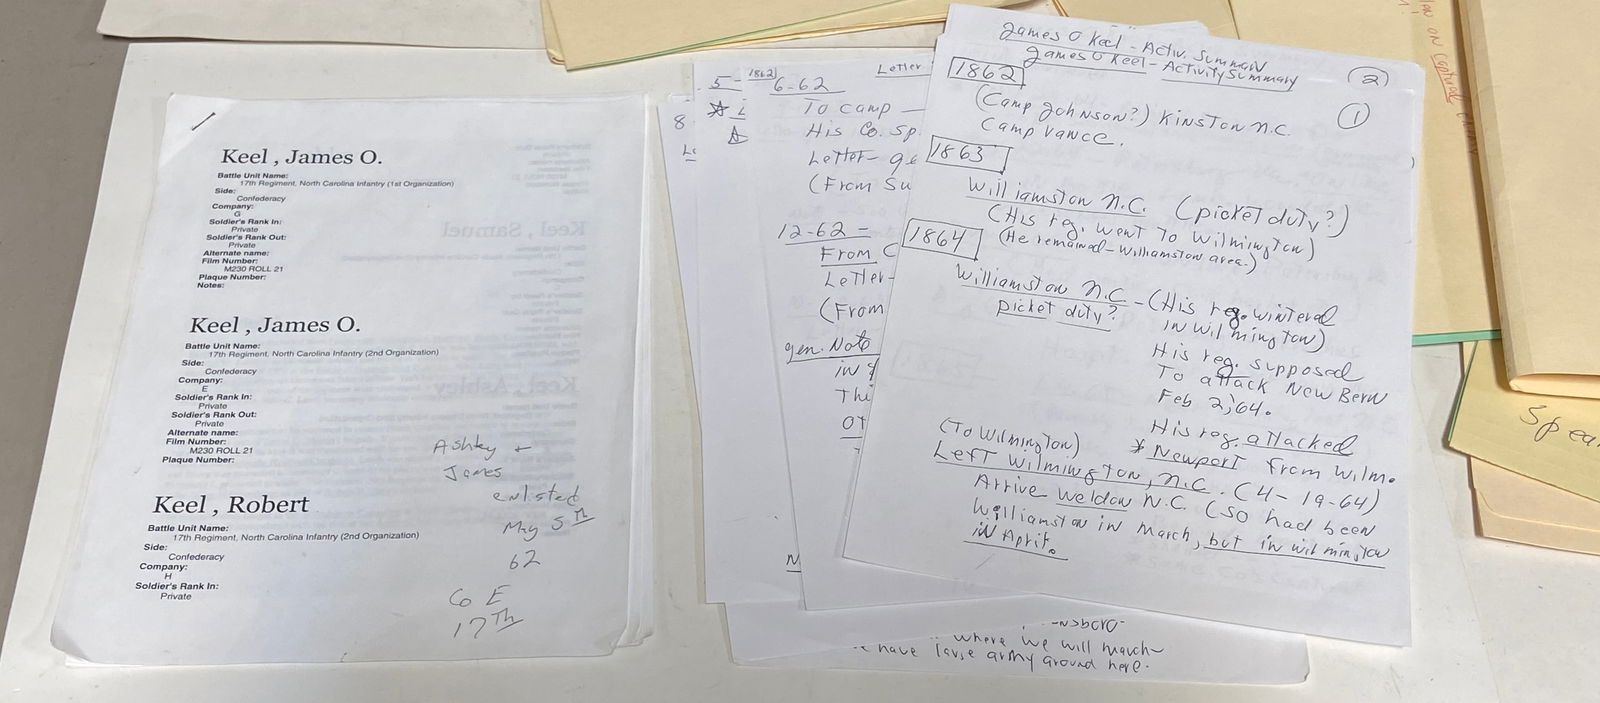 Keel , James O.
Battle Unit Name:
17th Regiment, North Carolina Infantry (1st Organization)
Side:
Confederacy
Company:
G
Soldier's Rank In:
Private
Soldier's Rank Out:
Private
Alternate name:
Film Number:
M230 ROLL 21
Plaque Number:
Notes:
Keel , James O.
Battle Unit Name:
17th Regiment, North Carolina Infantry (2nd Organization)
Side:
Confederacy
Company:
E
Soldier's Rank In:
Private
Soldier's Rank Out:
Private
Alternate name:
Film Number:
M230 ROLL 21
Plaque Number:
Keel , Robert
Battle Unit Name:
17th Regiment, North Carolina Infantry (2nd Organization)
Side:
Confederacy
Company:
H
Soldier's Rank In:
Private
Ashley +
James
enlisted
May 5th
62
Co E
17th
Keel, Samuel
Keel, Ashley
8
5 -
1862
6-62
Letter
To camp
His Co. Sp.
Letter-
(From Su
12-62 =
From C
Letter-
(From
gen. Note
in
Thi
OT
James O Keel - Activ. Summary
James O Keel - Activity Summary
(2)
(1)
1862
(Camp Johnson?) Kinston N.C.
Camp Vance.
1863
Williamston N.C. (picket duty?)
(His reg. went to Wilmington)
(He remained - Williamston area.)
1864
Williamston N.C - (His reg. wintered
picket duty?
in Wilmington)
His reg. supposed
To attack New Bern
Feb 2, 64.
His reg. attacked
* Newport from Wilm.
(To Wilmington)
Left Wilmington, N.C. (4-19-64)
Arrive Weldon N.C. (so had been
Williamston in march, but in wilmington
in April.
where we will march
have large army around here.
on Captured
Spea